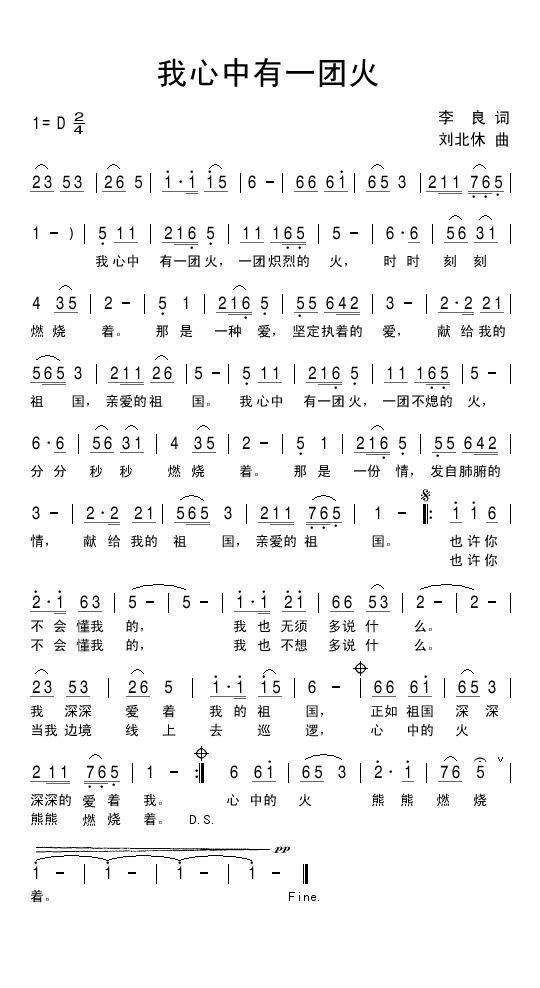 我心中有一团火
1=D 2/4
李 良 词
刘北休 曲
23 53 | 26 5 | 1·1 15 | 6 - | 66 61 | 65 3 | 211 765 |
1 - ) | 5 11 | 216 5 | 11 165 | 5 - | 6·6 | 56 31 |
我 心中 有一团 火, 一团 炽烈的 火, 时 时 刻 刻
4 35 | 2 - | 5 1 | 216 5 | 55 642 | 3 - | 2·2 21 |
燃 烧 着。 那 是 一种 爱, 坚定 执着的 爱, 献 给 我的
565 3 | 211 26 | 5 - | 5 11 | 216 5 | 11 165 | 5 - |
祖 国, 亲爱的 祖 国。 我 心中 有一团 火, 一团 不熄的 火,
6·6 | 56 31 | 4 35 | 2 - | 5 1 | 216 5 | 55 642 |
分 分 秒 秒 燃 烧 着。 那 是 一份 情, 发自 肺腑的
3 - | 2·2 21 | 565 3 | 211 765 | 1 - ‖: 1 1 6 |
情, 献 给 我的 祖 国, 亲爱的 祖 国。 也 许 你
也 许 你
2·1 63 | 5 - | 5 - | 1·1 21 | 66 53 | 2 - | 2 - |
不 会 懂我 的, 我 也 无须 多说 什 么。
不 会 懂我 的, 我 也 不想 多说 什 么。
23 53 | 26 5 | 1·1 15 | 6 - | 66 61 | 65 3 |
我 深深 爱 着 我 的 祖 国, 正如 祖国 深 深
当我 边境 线 上 去 巡 逻, 心 中的 火
2 11 | 765 | 1 - :‖ 6 61 | 65 3 | 2·1 | 76 5 ∨
深深的 爱 着 我。 心 中的 火 熊 熊 燃 烧
熊熊 燃 烧 着。 D.S.
pp
1 - | 1 - | 1 - | 1 - ‖
着。 Fine.